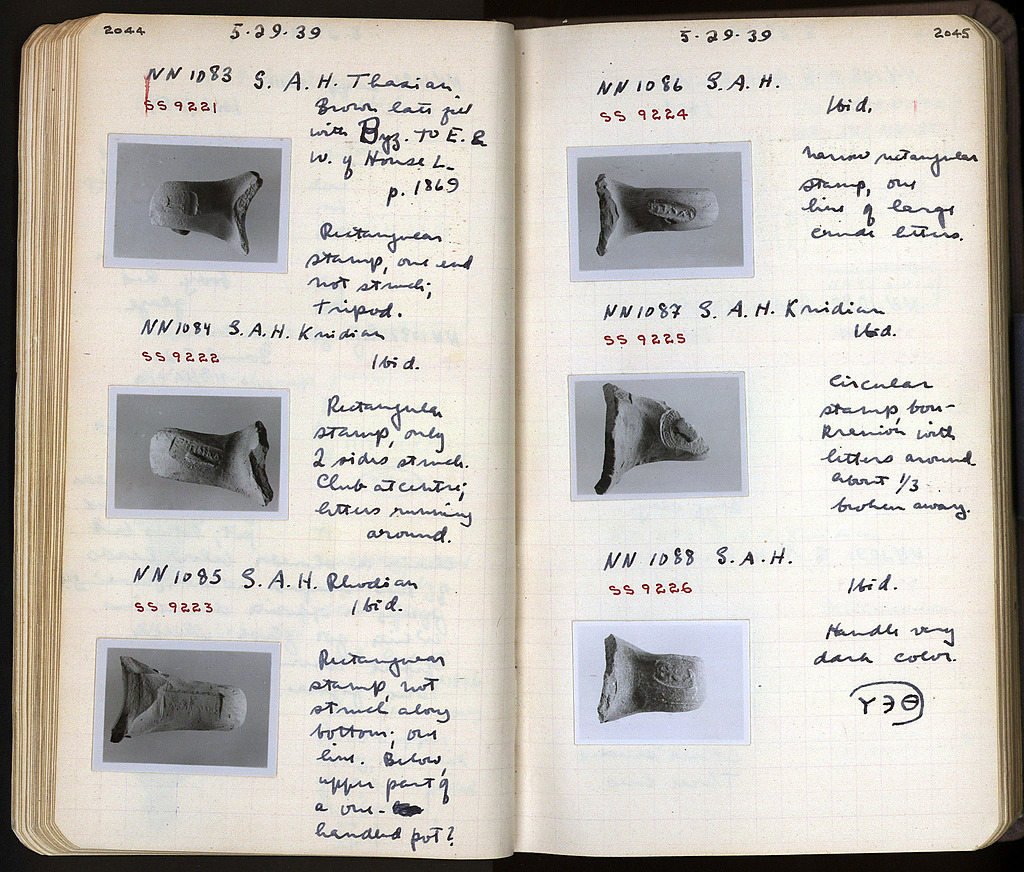 2044
5·29·39
NN 1083 S. A. H. Thasian.
SS 9221
Brown late fill
with Byz. to E. &
W. of House L_
p. 1869
Rectangular
stamp, one end
not struck;
tripod.
NN 1084 S. A. H. Knidian
SS 9222
Ibid.
Rectangular
stamp, only
2 sides struck.
Club at centre;
letters running
around.
NN 1085 S. A. H. Rhodian
SS 9223
Ibid.
Rectangular
stamp, not
struck along
bottom; one
line. Below,
upper part of
a one-
handled pot?
5·29·39
2045
NN 1086 S. A. H.
SS 9224
Ibid.
Narrow rectangular
stamp, one
line of large
crude letters.
NN 1087 S. A. H. Knidian
SS 9225
Ibid.
Circular
stamp, bou-
kranion with
letters around
about 1/3
broken away.
NN 1088 S. A. H.
SS 9226
Ibid.
Handle very
dark color.